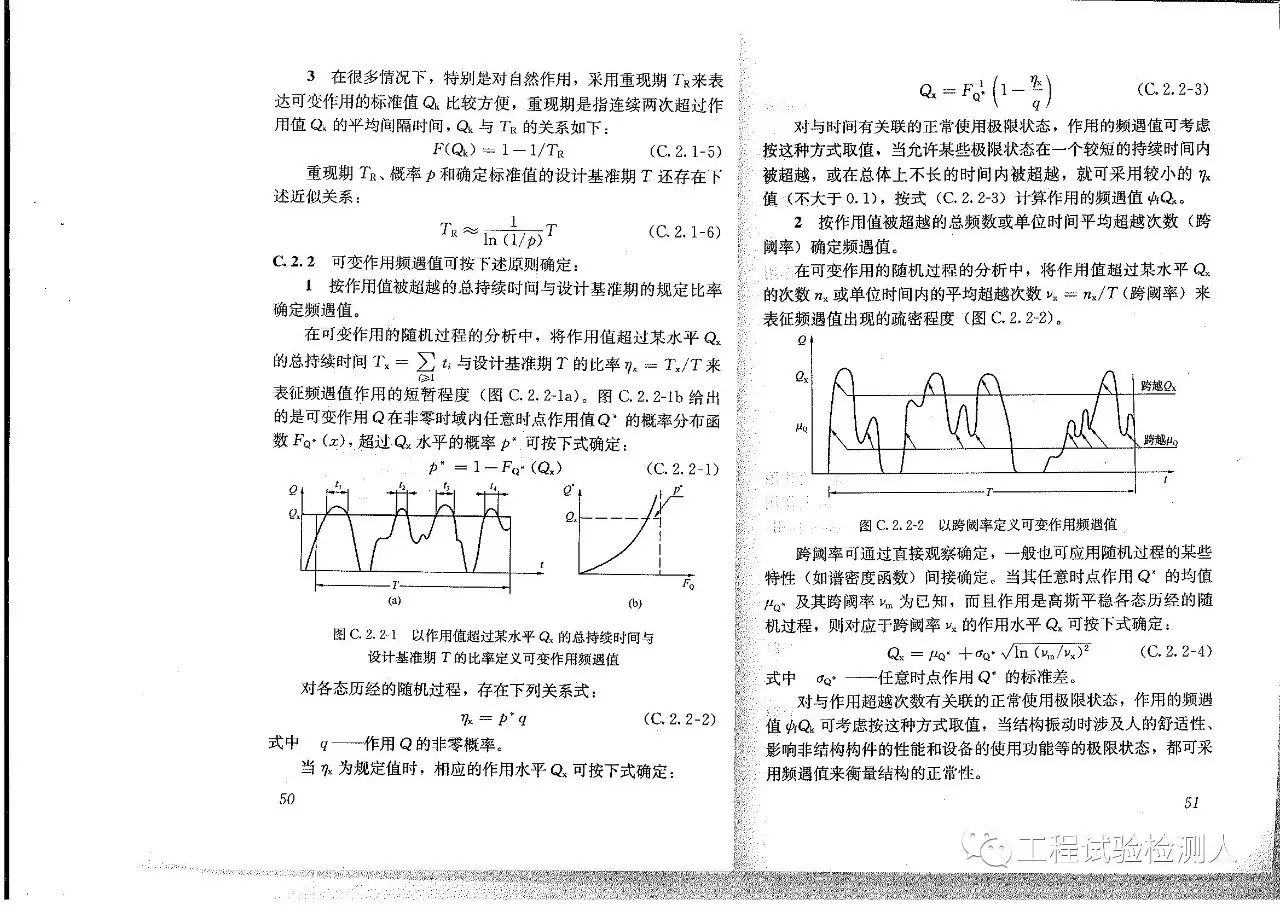 3 在很多情况下，特别是对自然作用，采用重现期 TR来表
达可变作用的标准值 Qk 比较方便，重现期是指连续两次超过作
用值 Qk 的平均间隔时间，Qk 与 TR 的关系如下：
F(Qk) = 1－1/TR (C.2.1-5)
重现期 TR、概率 p 和确定标准值的设计基准期 T 还存在下
述近似关系：
TR ≈ 1/ln(1/p) T (C.2.1-6)
C.2.2 可变作用频遇值可按下述原则确定：
1 按作用值被超越的总持续时间与设计基准期的规定比率
确定频遇值。
在可变作用的随机过程的分析中，将作用值超过某水平 Qx
的总持续时间 Tx = ∑ ti 与设计基准期 T 的比率 ηx = Tx/T 来
i≥1
表征频遇值作用的短暂程度（图 C.2.2-1a）。图 C.2.2-1b 给出
的是可变作用 Q 在非零时域内任意时点作用值Q* 的概率分布函
数 FQ*(x)，超过 Qx 水平的概率 p* 可按下式确定：
p* = 1－FQ*(Qx) (C.2.2-1)
Q t1 t2 t3 t4
Qx
t
T
(a)
Q* p*
Qx
FQ
(b)
图 C.2.2-1 以作用值超过某水平 Qx 的总持续时间与
设计基准期 T 的比率定义可变作用频遇值
对各态历经的随机过程，存在下列关系式：
ηx = p*q (C.2.2-2)
式中 q——作用 Q 的非零概率。
当 ηx 为规定值时，相应的作用水平 Qx 可按下式确定：
50
Qx = FQ*⁻¹(1－ηx/q) (C.2.2-3)
对与时间有关联的正常使用极限状态，作用的频遇值可考虑
按这种方式取值，当允许某些极限状态在一个较短的持续时间内
被超越，或在总体上不长的时间内被超越，就可采用较小的 ηx
值（不大于 0.1），按式（C.2.2-3）计算作用的频遇值 ψfQk。
2 按作用值被超越的总频数或单位时间平均超越次数（跨
阈率）确定频遇值。
在可变作用的随机过程的分析中，将作用值超过某水平 Qx
的次数 nx 或单位时间内的平均超越次数 νx = nx/T（跨阈率）来
表征频遇值出现的疏密程度（图 C.2.2-2）。
Q
Qx
跨越Qx
μQ
跨越μQ
t
T
图 C.2.2-2 以跨阈率定义可变作用频遇值
跨阈率可通过直接观察确定，一般也可应用随机过程的某些
特性（如谱密度函数）间接确定。当其任意时点作用 Q* 的均值
μQ* 及其跨阈率 νm 为已知，而且作用是高斯平稳各态历经的随
机过程，则对应于跨阈率 νx 的作用水平 Qx 可按下式确定：
Qx = μQ* + σQ* √ln(νm/νx)² (C.2.2-4)
式中 σQ* ——任意时点作用 Q* 的标准差。
对与作用超越次数有关联的正常使用极限状态，作用的频遇
值 ψfQk 可考虑按这种方式取值，当结构振动时涉及人的舒适性、
影响非结构构件的性能和设备的使用功能等的极限状态，都可采
用频遇值来衡量结构的正常性。
51
工程试验检测人